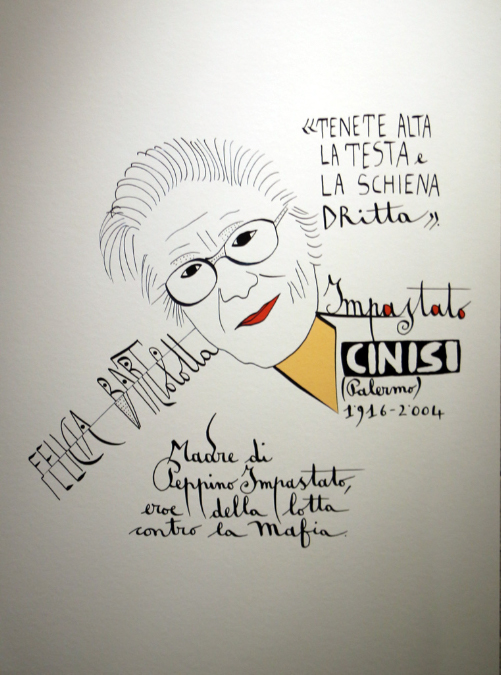 «TENETE ALTA
LA TESTA e
LA SCHIENA
DRitta».
Impastato
CINISI
(Palermo)
1916-2004
FELICIA BARTolotta
Madre di
Peppino Impastato,
eroe della lotta
contro la Mafia.